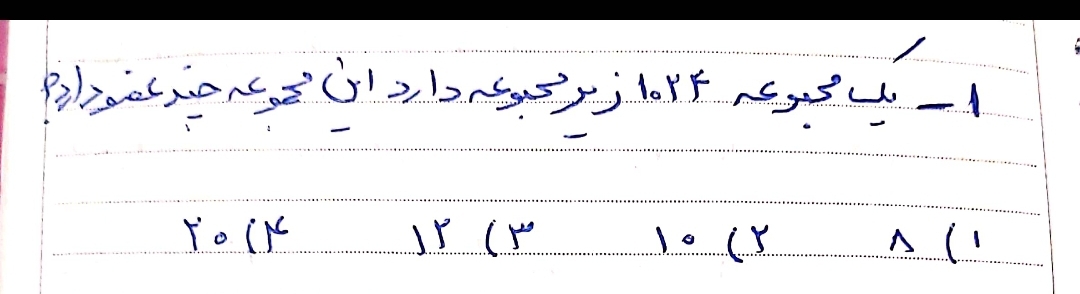 ۱ - یک مجموعه ۱۰۲۴ زیرمجموعه دارد این مجموعه چند عضو دارد؟
۱) ۸ ۲) ۱۰ ۳) ۱۲ ۴) ۲۰